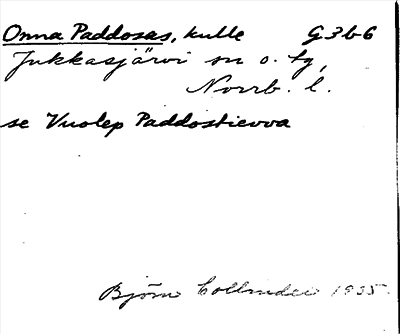 Onna Paddosas, kulle G3b6
Jukkasjärvi sn o. tg,
Norrb. l.
se Vuolep Paddostievva
Björn Collinder 1935